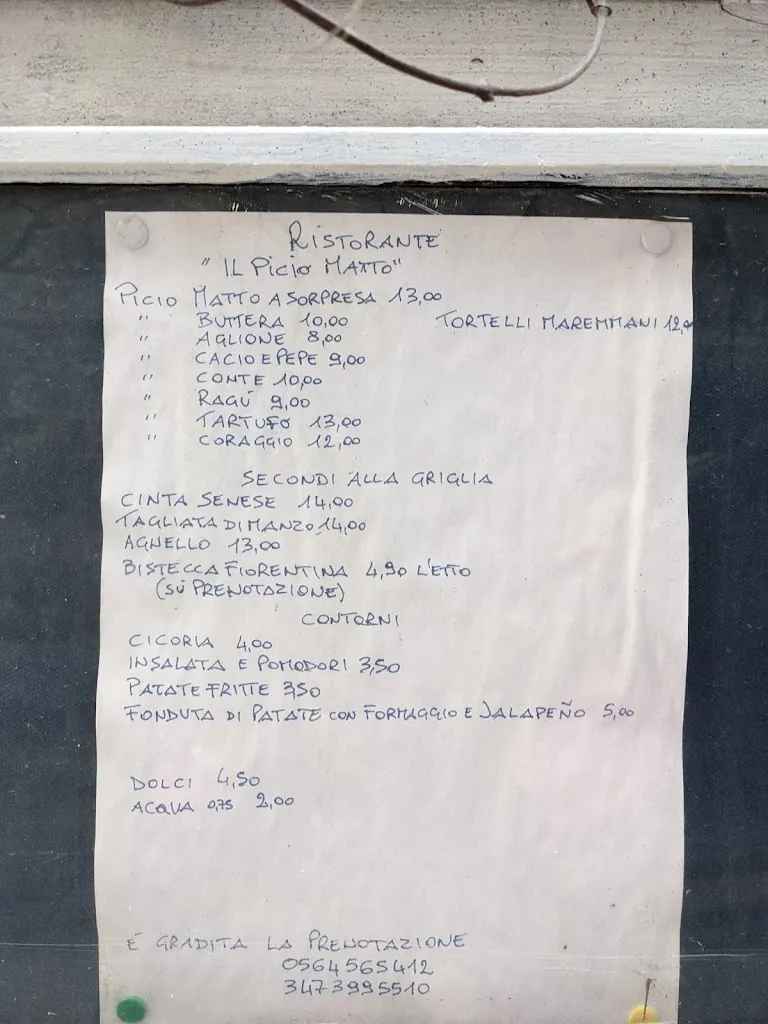 RISTORANTE
"IL PICIO MATTO"
PICIO MATTO A SORPRESA 13,00
" BUTTERA 10,00 TORTELLI MAREMMANI 12,00
" AGLIONE 8,00
" CACIO E PEPE 9,00
" CONTE 10,00
" RAGÚ 9,00
" TARTUFO 13,00
" CORAGGIO 12,00
SECONDI ALLA GRIGLIA
CINTA SENESE 14,00
TAGLIATA DI MANZO 14,00
AGNELLO 13,00
BISTECCA FIORENTINA 4,90 L'ETTO
(SÚ PRENOTAZIONE)
CONTORNI
CICORIA 4,00
INSALATA E POMODORI 3,50
PATATE FRITTE 3,50
FONDUTA DI PATATE CON FORMAGGIO E JALAPEÑO 5,00
DOLCI 4,50
ACQUA 0,75 2,00
É GRADITA LA PRENOTAZIONE
0564565412
3473995510